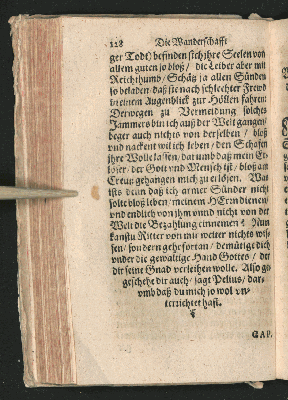 118 Die Wanderschafft
ger Todt) befinden sich ihre Seelen von
allem guten so bloß / die Leiber aber mit
Reichthumb / Schätz ja allen Sünden
so beladen daß sie nach schlechter Frewd
in einem Augenblick zur Höllen fahren:
Derwegen zu Vermeidung solches
Jammers bin ich auß der Welt gangen/
beger auch nichts von derselben / bloß
vnd nackent wil ich leben / den Schafen
jhre Wolle lassen / darumb daß mein Er-
löser / der Gott vnd Mensch ist / bloß am
Creutz gehangen mich zu erlösen. Was
ists denn daß ich armer Sünder nicht
solte bloß leben / meinem HErrn dienen/
vnd endlich von jhm vnnd nicht von der
Welt die Bezahlung einnemen? Nun
kanstu Ritter von mir weiter nichts wis-
sen / sondern gehe fortan / demütige dich
vnder die gewaltige Hand Gottes / der
dir seine Gnad verleihen wolle. Also ge-
geschehe dir auch / sagt Pelius / dar-
vmb daß du mich so wol vn-
terrichtet hast.
CAP.